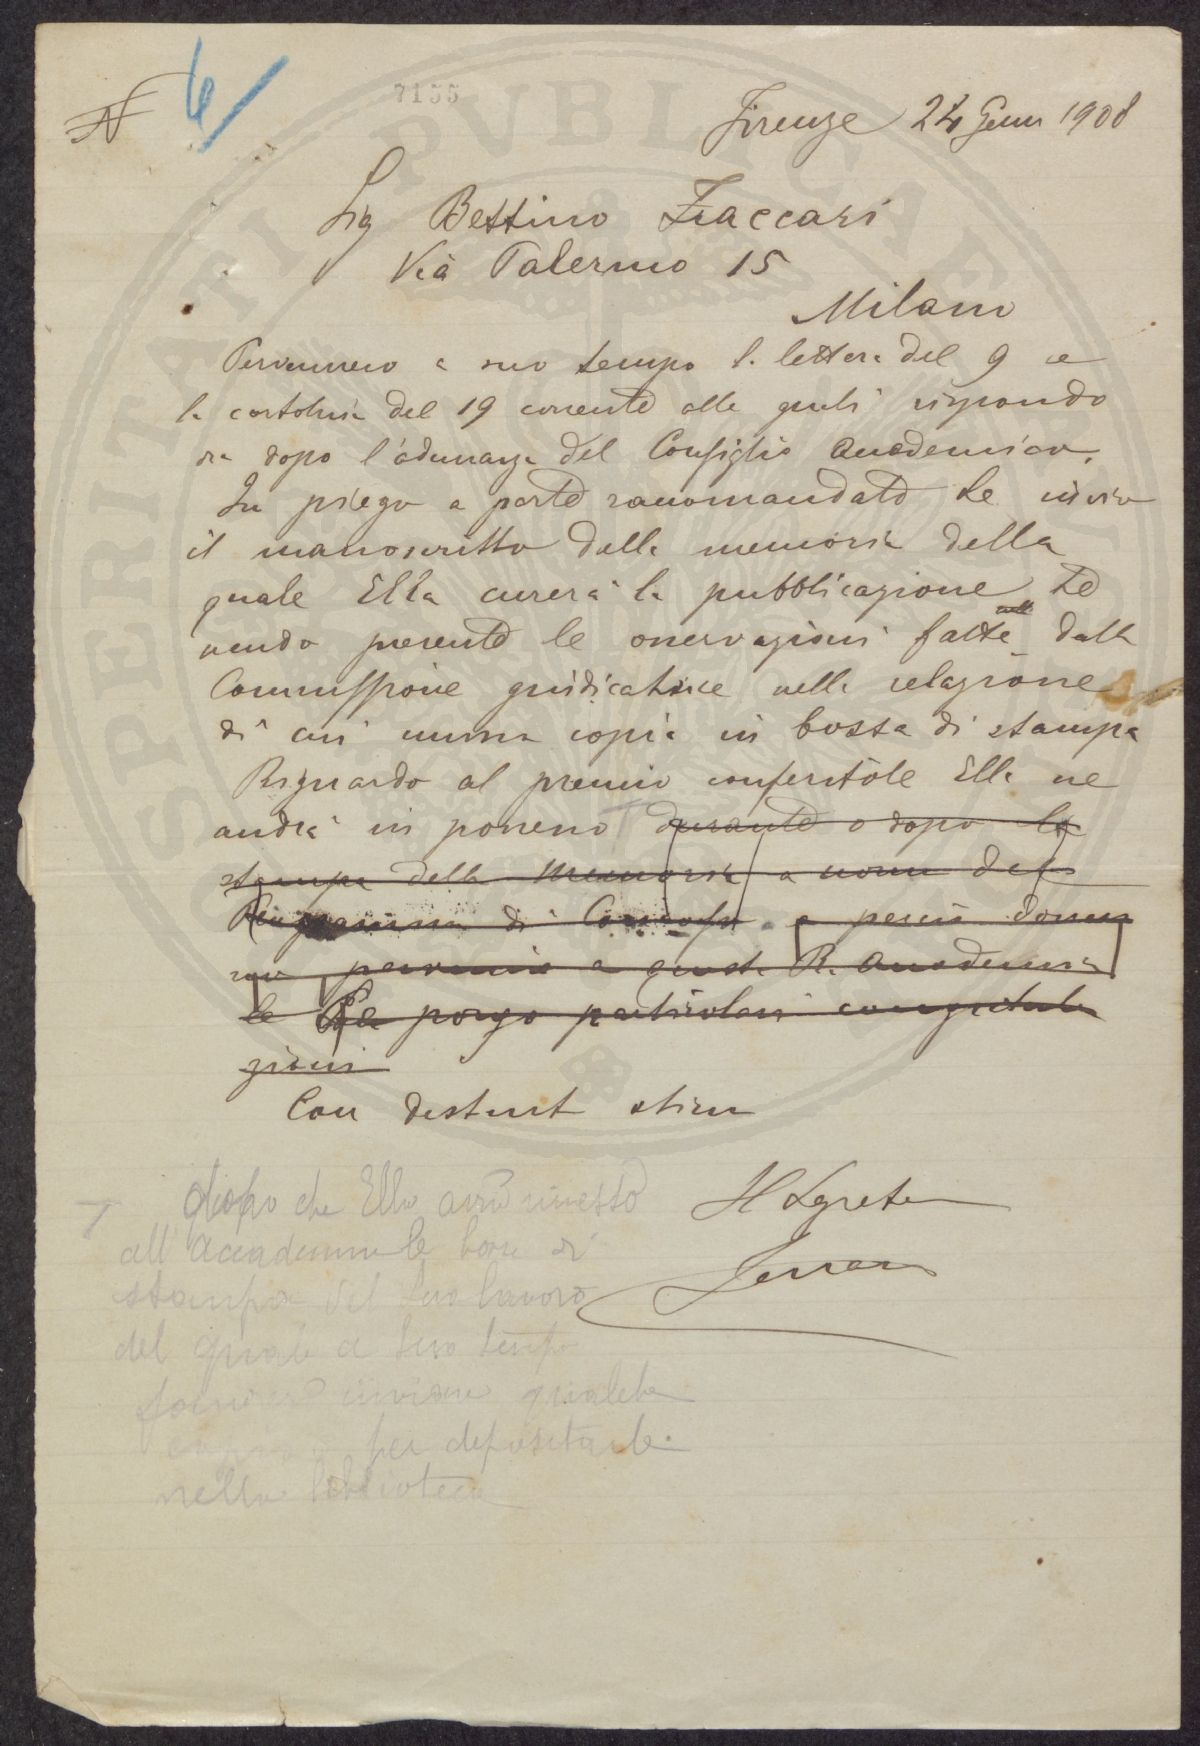 N 6
7155
Firenze 24 Genn 1908
Sig Bettino Zaccari
Via Palermo 15
Milano
Pervennero a suo tempo la lettera del 9 e
la cartolina del 19 corrente alle quali rispondo
ora dopo l'adunanza del Consiglio Accademico.
In piego a parte raccomandato Le invio
il manoscritto della memoria della
quale Ella curerà la pubblicazione te
nendo presente le osservazioni fatte dalla
Commissione giudicatrice nella relazione
di cui unisco copia in bozza di stampa
Riguardo al premio conferitole Ella ne
andrà in possesso durante o dopo la
stampa della Memoria a norma del
Programma di Concorso e perciò
pervenire a questa R. Accademia
le Le porgo particolari congratula
zioni
Con distint stima
Il Segreta
dopo che Ella avrà rimesso
all'Accademia le bozze di
stampa del Suo lavoro
del quale a Suo tempo
inviare qualche
per depositarle
nella biblioteca
SPERITATI PVBLICAE